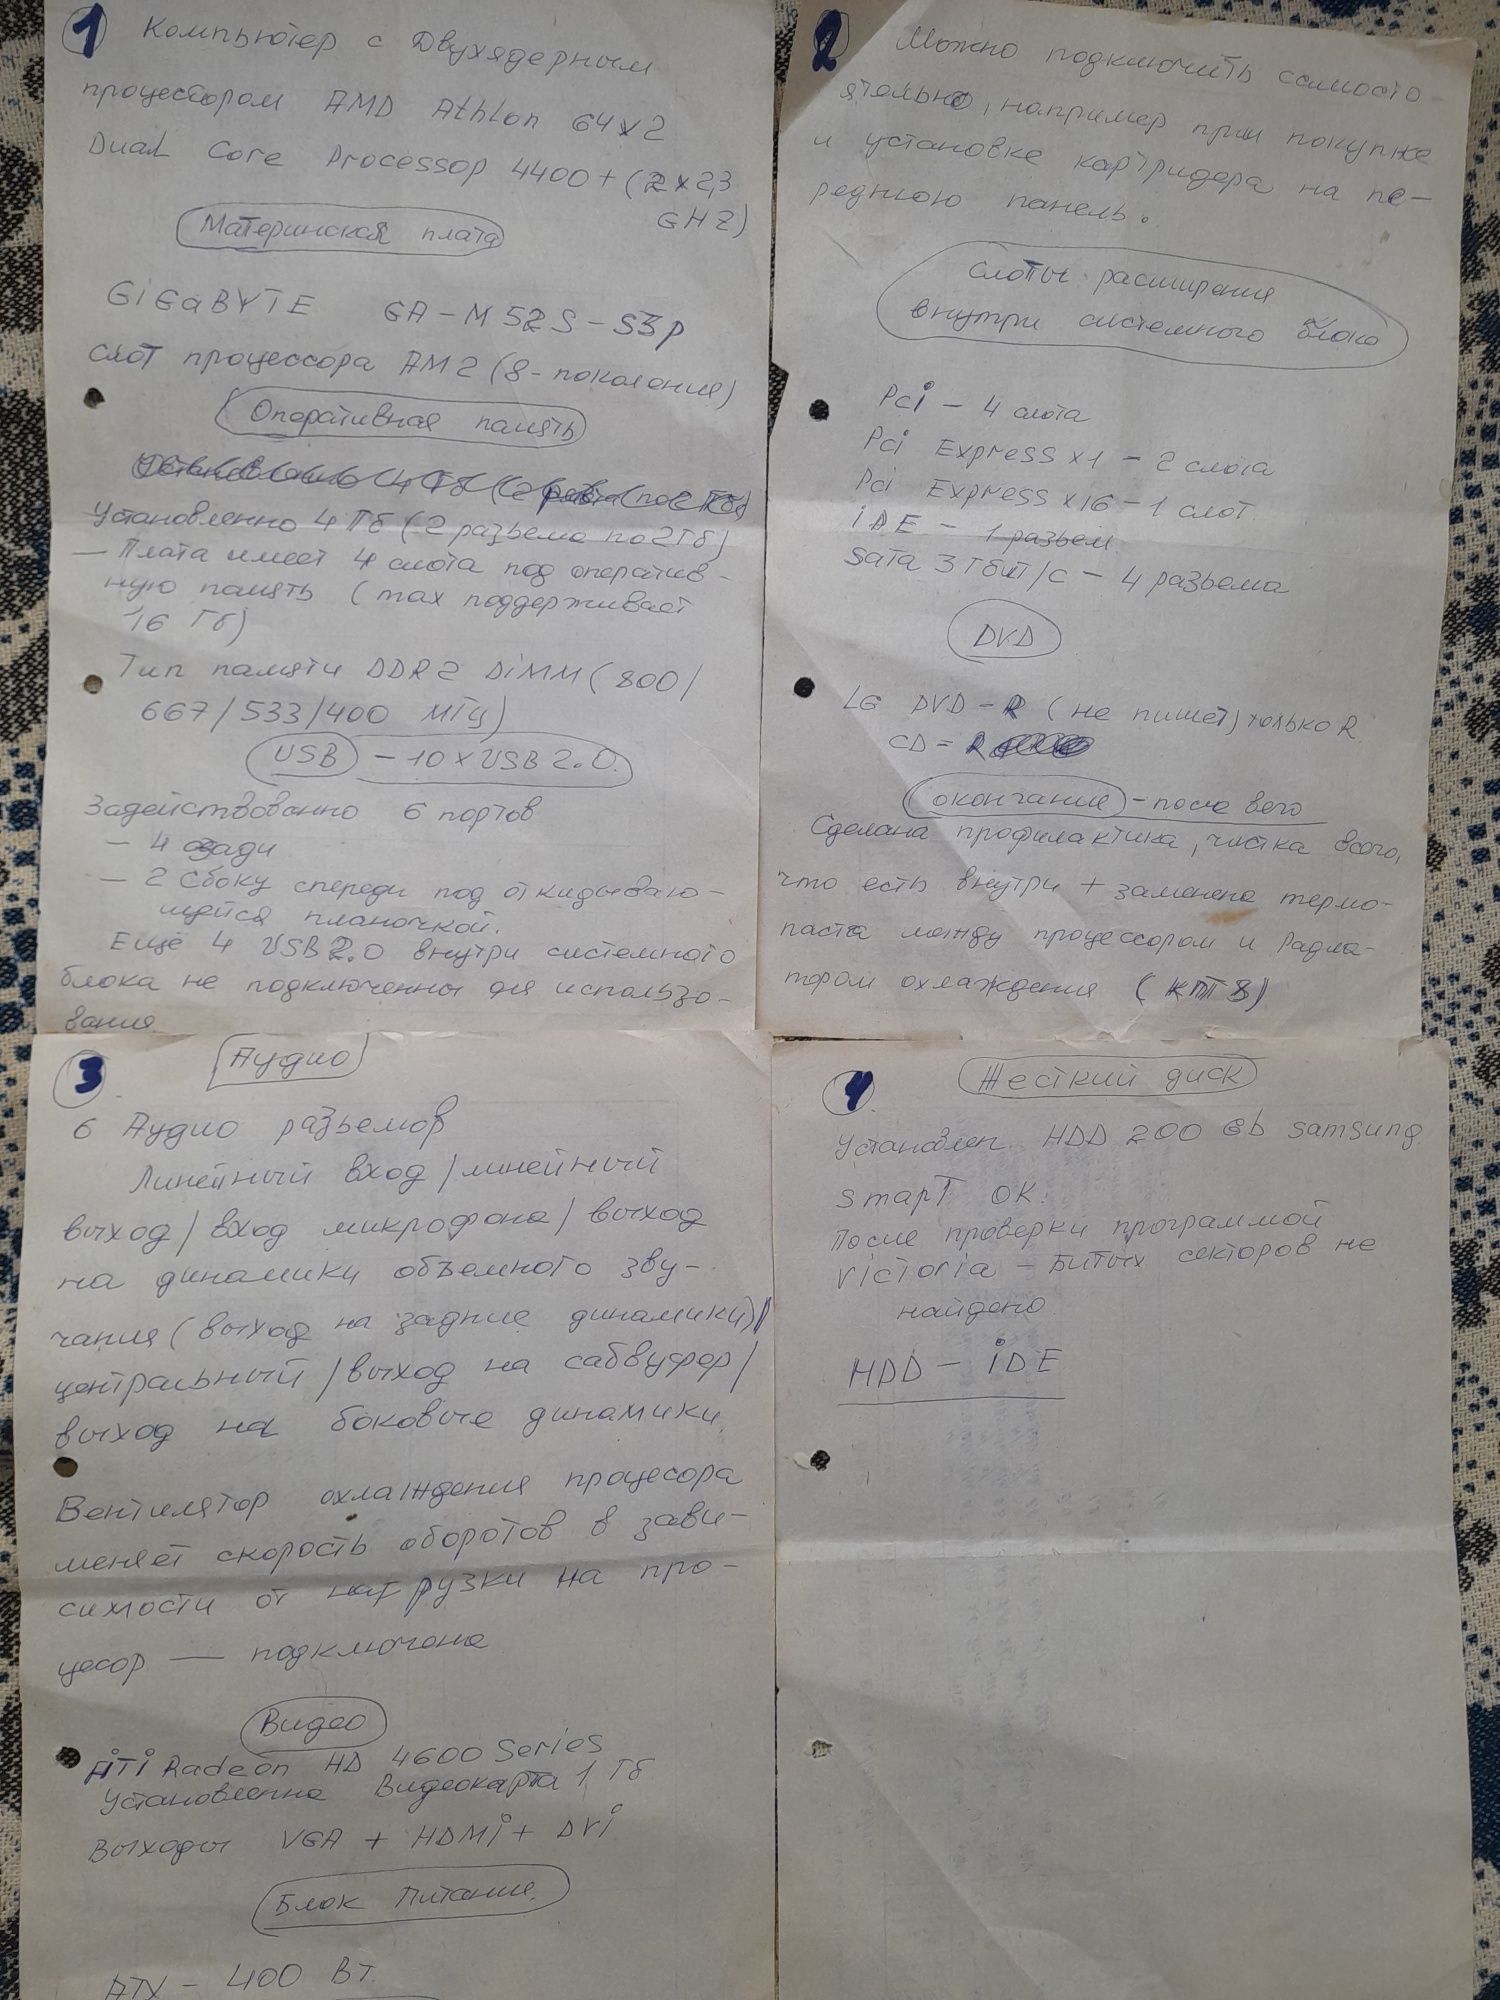 1
Компьютер с Двухядерным
процессором AMD Athlon 64x2
Dual Core Processор 4400+ (2x2,3
GHZ)
Материнская плата
GiGaBYTE GA-M52S-S3p
слот процессора AM2 (8-поколения)
Оперативная память
Установленно 4 Гб (2 разьема по 2 Гб)
Установленно 4 Гб (2 разьема по 2 Гб)
— Плата имеет 4 слота под оператив-
ную память (max поддерживает
16 Гб)
Тип памяти DDR2 DiMM (800/
667/533/400 МГц)
USB - 10xUSB 2.0.
Задействованно 6 портов
- 4 сзади
- 2 сбоку спереди под откидываю-
щейся планочкой.
Ещё 4 USB 2.0 внутри системного
блока не подключенны для использо-
вания.
2
Можно подключить самосто-
ятельно, например при покупке
и установке картридера на пе-
реднюю панель.
Слоты расширения
внутри системного блока
Pci - 4 слота
Pci Express x1 - 2 слота
Pci Express x16 - 1 слот.
iDE - 1 разьем.
Sata 3 Гбит/с - 4 разьема
DVD
LG DVD-R (не пишет) только R.
CD = R
окончание - после всего
Сделана профилактика, чистка всего,
что есть внутри + заменена термо-
паста между процессором и Радиа-
тором охлаждения (КПТ 8)
3
Аудио
6 Аудио разьемов
Линейный вход/линейный
выход/вход микрофона/выход
на динамики объемного зву-
чания (выход на задние динамики)/
центральный/выход на сабвуфер/
выход на боковые динамики.
Вентилятор охлаждения процесора
меняет скорость оборотов в зави-
симости от нагрузки на про-
цесор — подключена
Видео
ATi Radeon HD 4600 Series
Установленна Видеокарта 1 Гб
Выходы VGA + HDMi + DVi
Блок Питания.
ATX - 400 Вт.
4
Жесткий диск
Установлен HDD 200 Gb Samsung.
SmapT OK.
После проверки программой
Victoria - Битых секторов не
найдено.
HDD - iDE